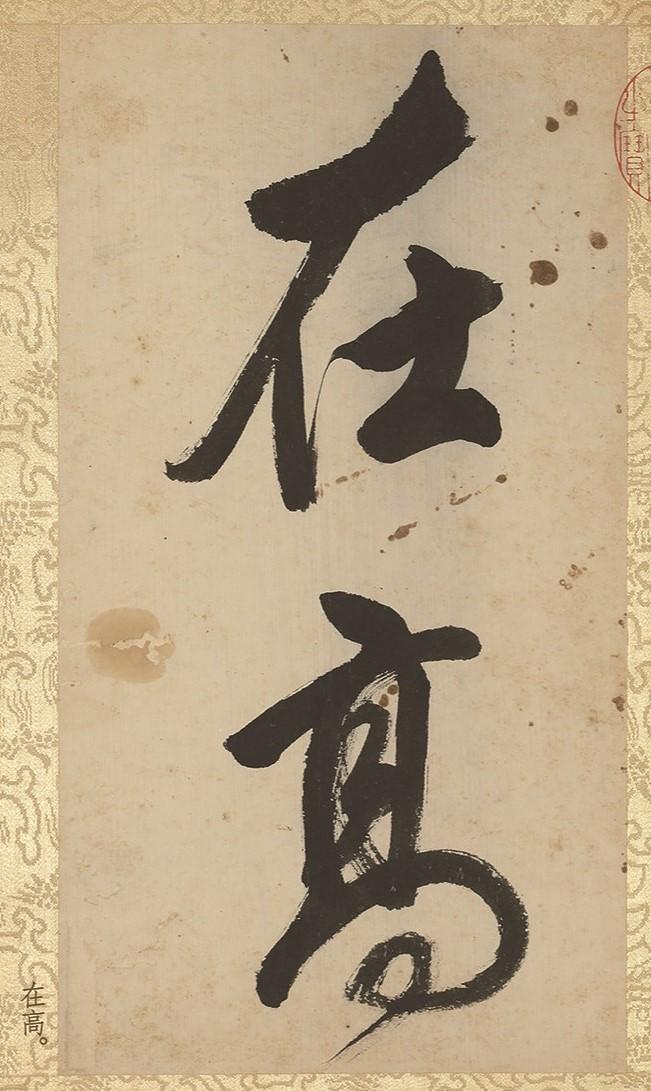 在高
在高。